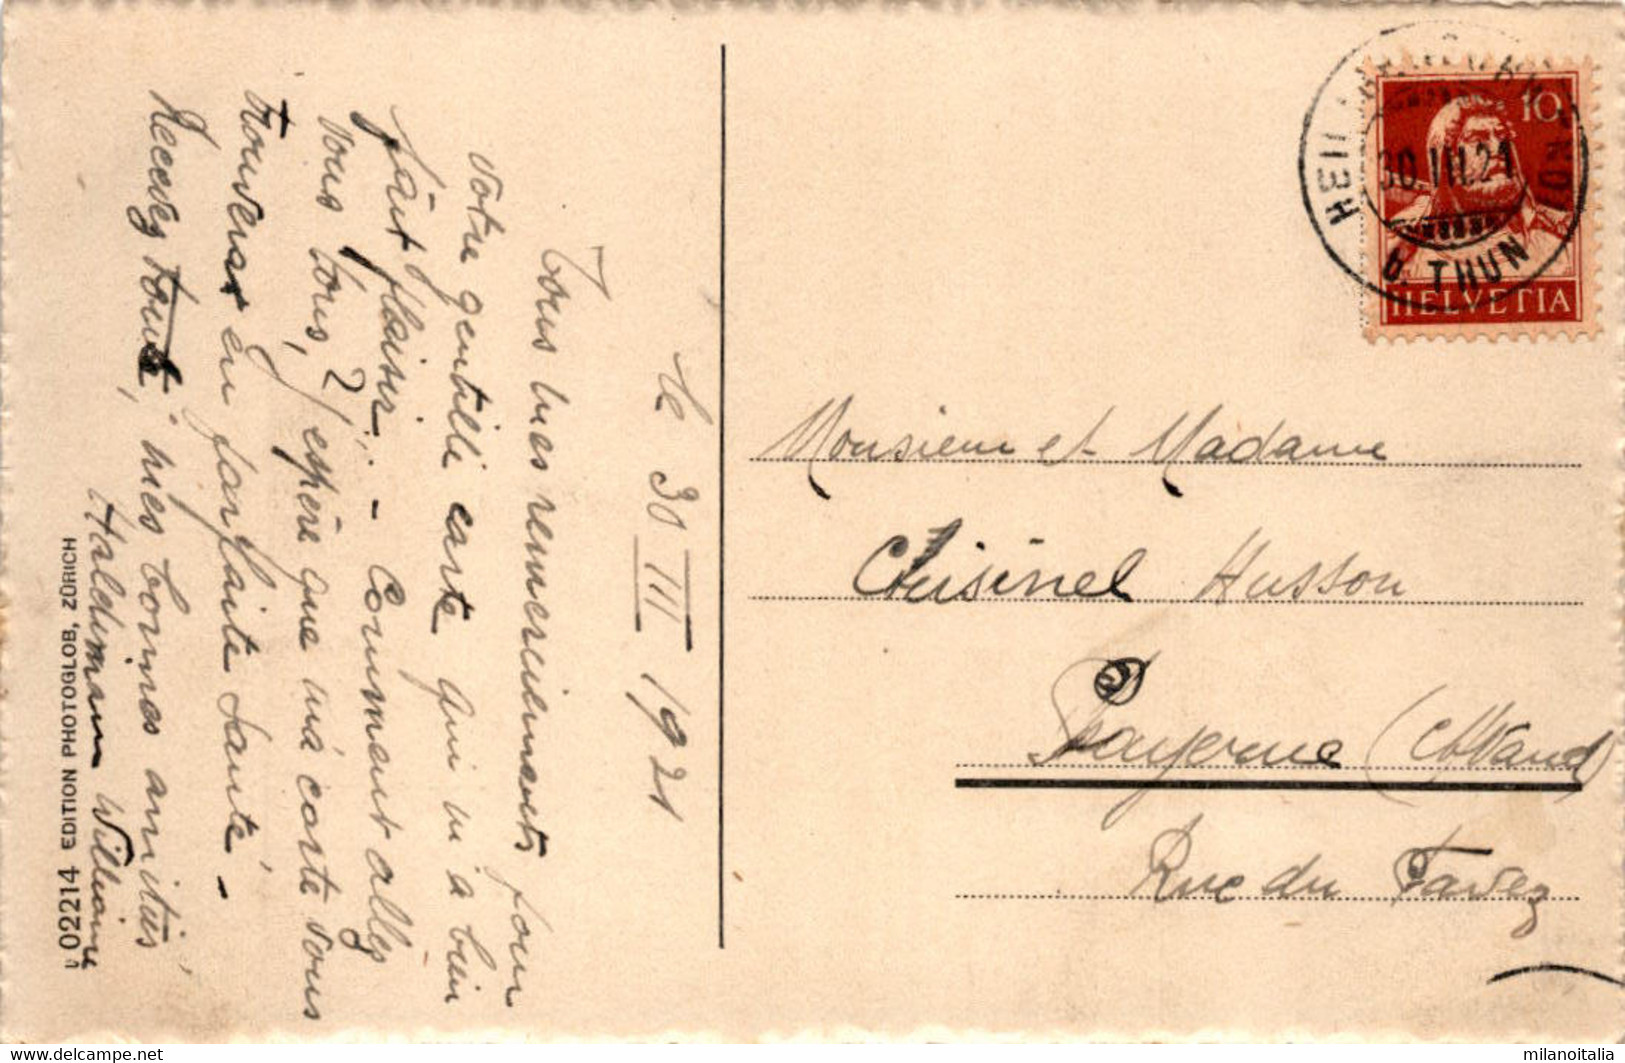 le 30 III 1921
Tous mes remerciements pour
votre gentille carte qui m'a bien
fait plaisir. - Comment allez
vous tous, ? J'espère que ma carte vous
trouveras en parfaite santé. -
Recevez tous, mes bonnes amitiés
Haldimann William
U 02214 EDITION PHOTOGLOB, ZÜRICH
10
HELVETIA
30.III.21
b. THUN
Monsieur et Madame
Husson
Payerne (Vaud)
Rue du Favez
milanoitalia